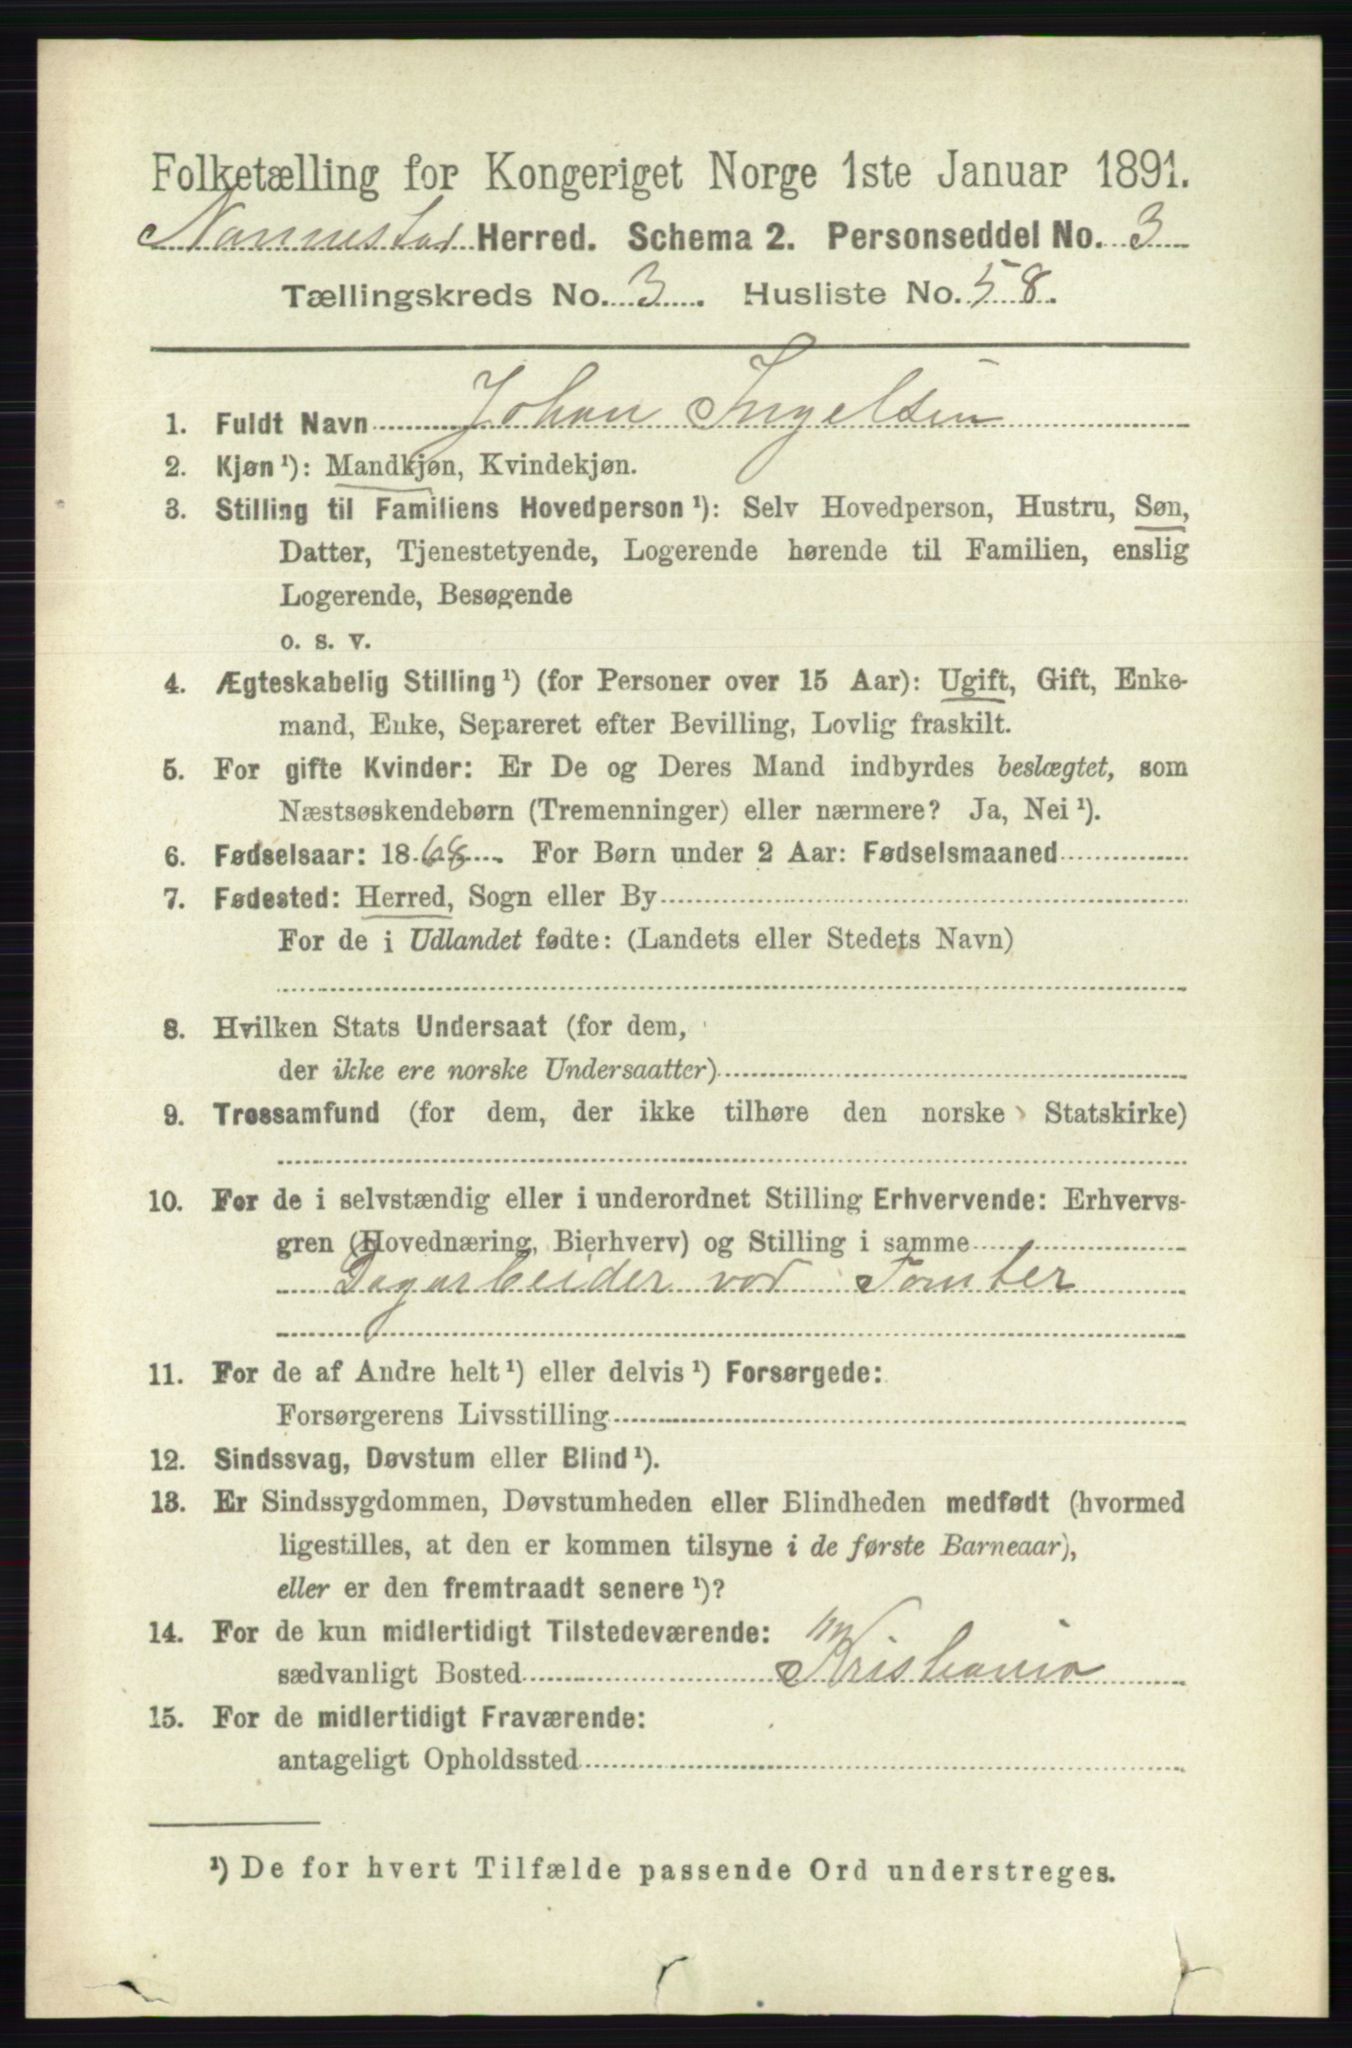 Folketælling for Kongeriget Norge 1ste Januar 1891.
Nannestad Herred. Schema 2. Personseddel No. 3
Tællingskreds No. 3. Husliste No. 58.
1. Fuldt Navn Johan Ingelsen
2. Kjøn ¹): Mandkjøn, Kvindekjøn.
3. Stilling til Familiens Hovedperson ¹): Selv Hovedperson, Hustru, Søn,
Datter, Tjenestetyende, Logerende hørende til Familien, enslig
Logerende, Besøgende
o. s. v.
4. Ægteskabelig Stilling ¹) (for Personer over 15 Aar): Ugift, Gift, Enke-
mand, Enke, Separeret efter Bevilling, Lovlig fraskilt.
5. For gifte Kvinder: Er De og Deres Mand indbyrdes beslægtet, som
Næstsøskendebørn (Tremenninger) eller nærmere? Ja, Nei ¹).
6. Fødselsaar: 1868. For Børn under 2 Aar: Fødselsmaaned
7. Fødested: Herred, Sogn eller By
For de i Udlandet fødte: (Landets eller Stedets Navn)
8. Hvilken Stats Undersaat (for dem,
der ikke ere norske Undersaatter)
9. Trossamfund (for dem, der ikke tilhøre den norske Statskirke)
10. For de i selvstændig eller i underordnet Stilling Erhvervende: Erhvervs-
gren (Hovednæring, Bierhverv) og Stilling i samme
Dagarbeider ved Tomter
11. For de af Andre helt ¹) eller delvis ¹) Forsørgede:
Forsørgerens Livsstilling
12. Sindssvag, Døvstum eller Blind ¹).
13. Er Sindssygdommen, Døvstumheden eller Blindheden medfødt (hvormed
ligestilles, at den er kommen tilsyne i de første Barneaar),
eller er den fremtraadt senere ¹)?
14. For de kun midlertidigt Tilstedeværende:
sædvanligt Bosted Kristiania
15. For de midlertidigt Fraværende:
antageligt Opholdssted
¹) De for hvert Tilfælde passende Ord understreges.